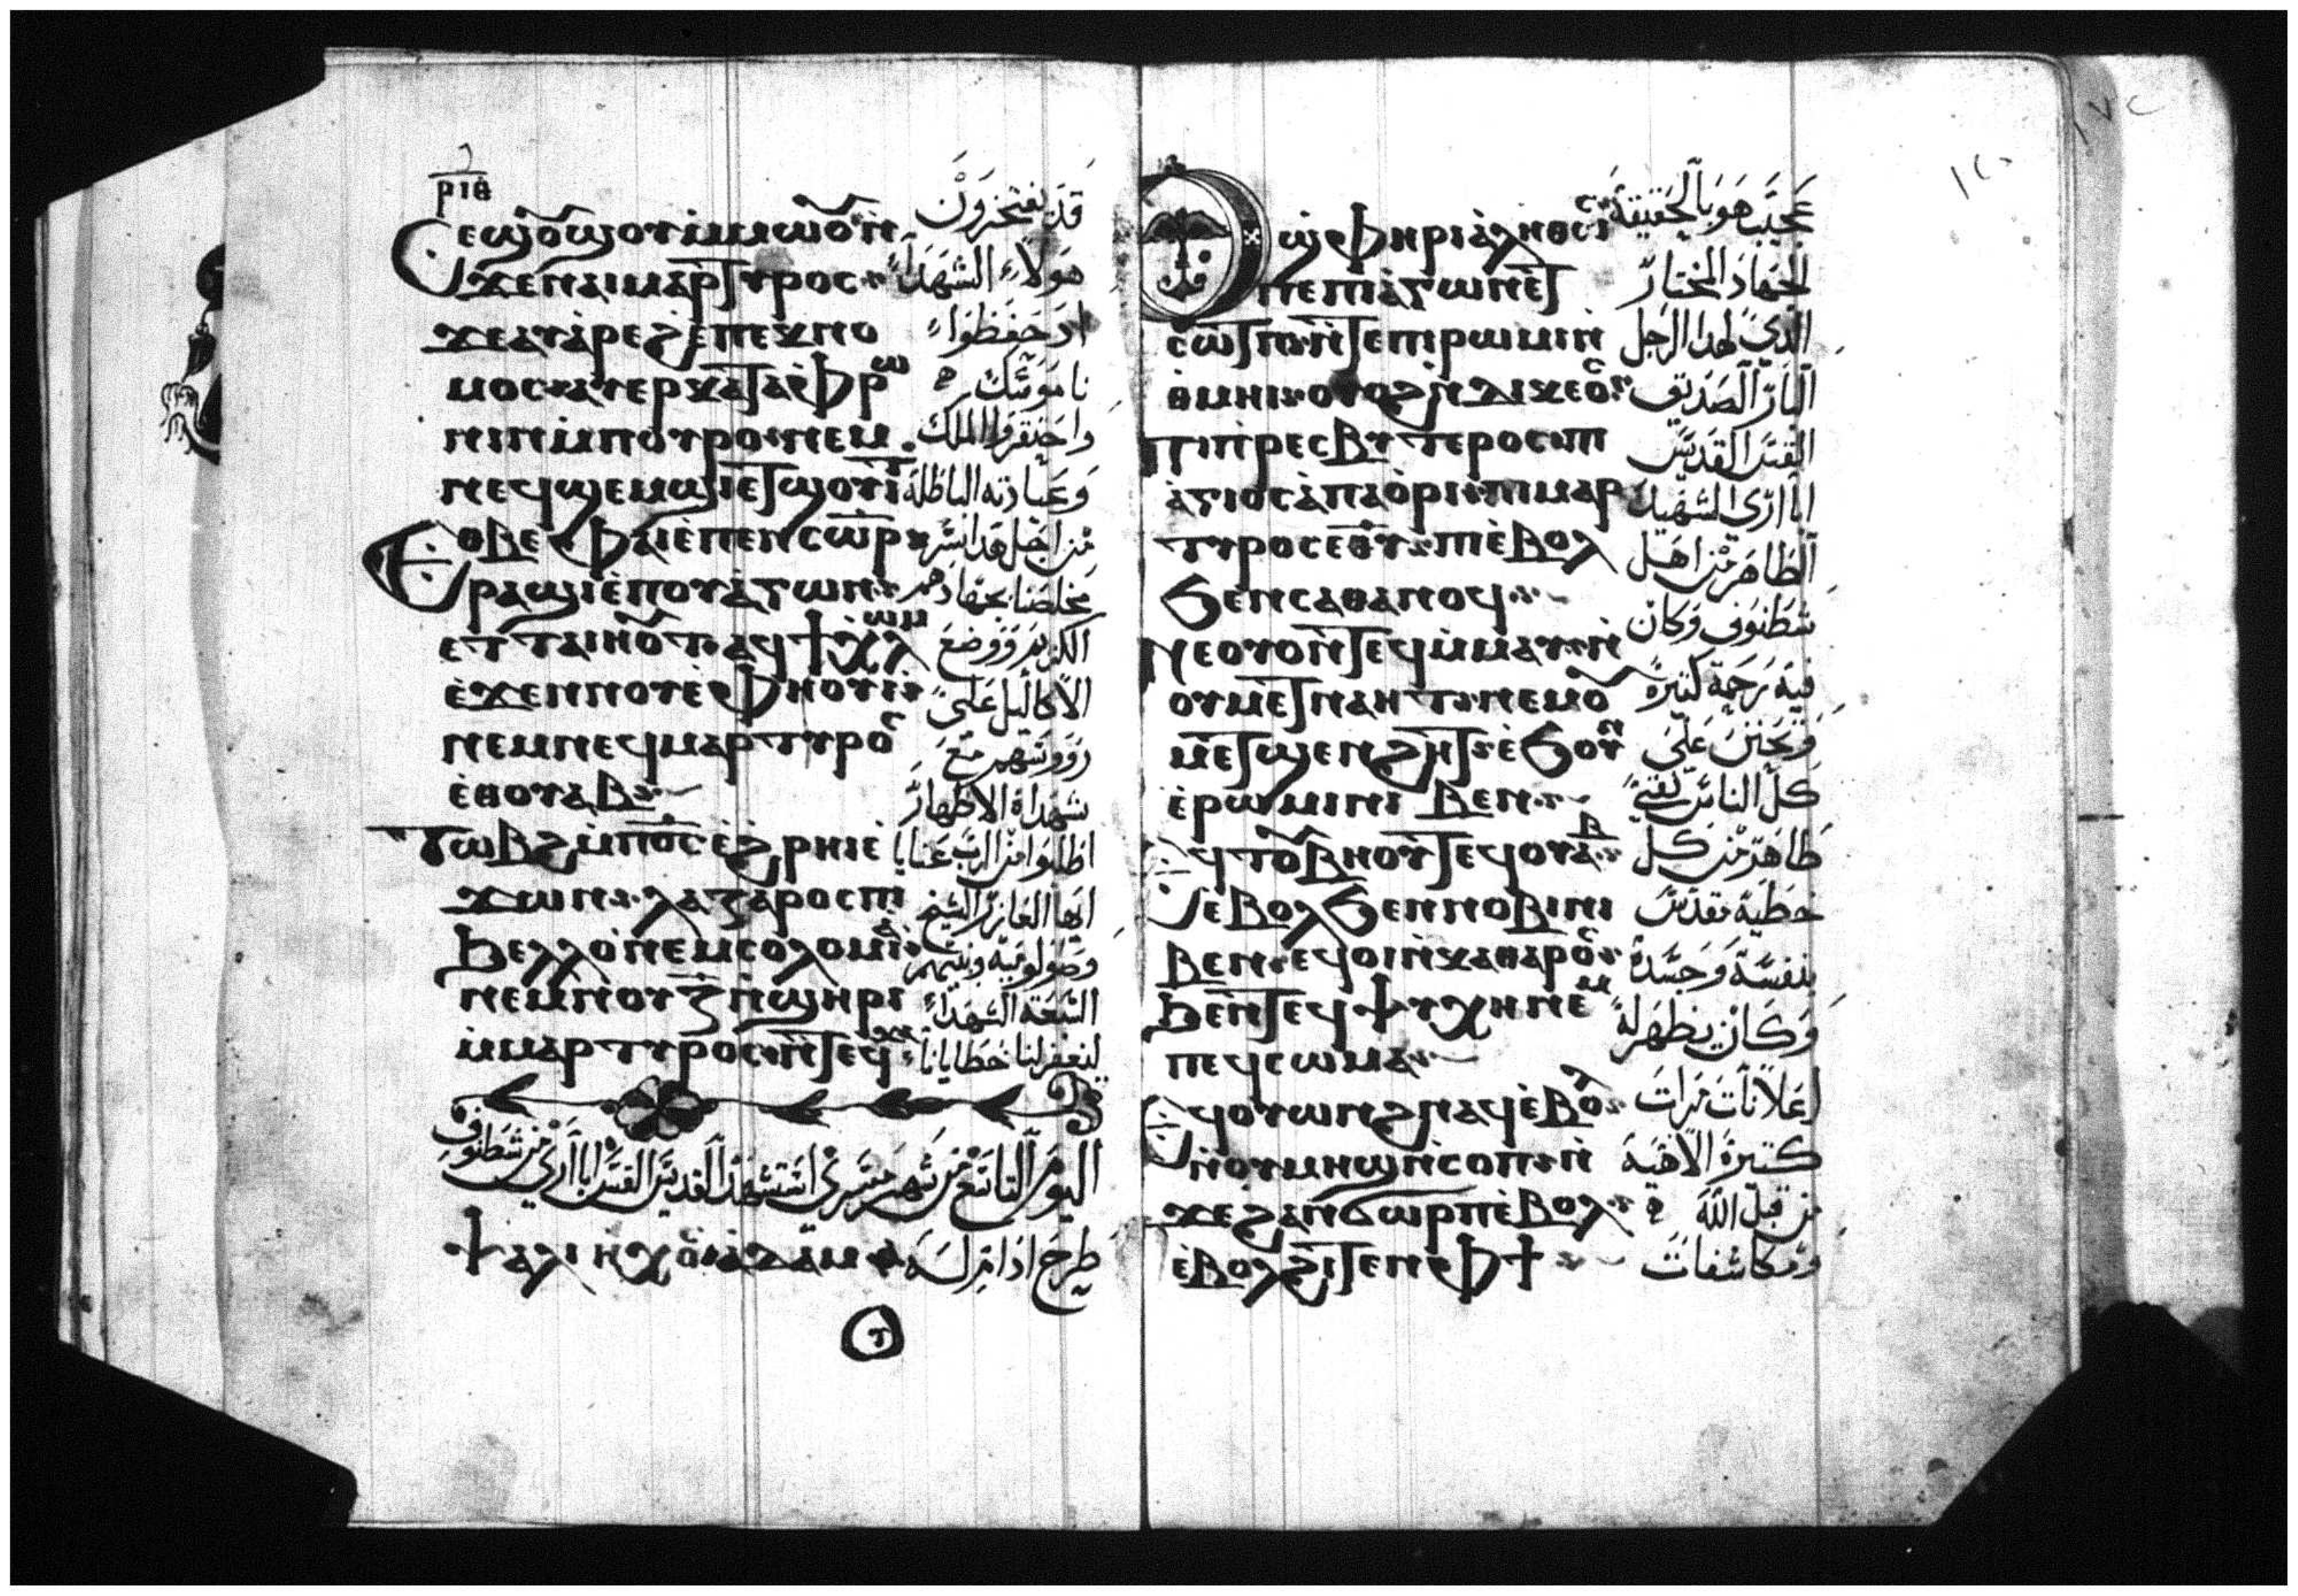 ⲣⲓⲑ
Ⲥⲉϣⲟⲩϣⲟⲩ ⲙ̀ⲙⲱⲟⲩ ⲛ̀
ϫⲉ ⲛⲁⲓⲙⲁⲣⲧⲩⲣⲟⲥ
ϫⲉ ⲁⲩⲁ̀ⲣⲉϩ ⲉ̀ⲡⲉⲕⲛⲟ
ⲙⲟⲥ ⲁⲩⲉⲣⲕⲁⲧⲁⲫⲣⲱ
ⲛⲓⲛ ⲙ̀ⲡⲟⲩⲣⲟ ⲛⲉⲙ
ⲛⲉϥϣⲉⲙϣⲓ ⲉⲧϣⲟⲩⲓⲧ
Ⲉⲑⲃⲉ ⲫⲁⲓ ⲉ̀ ⲡⲉⲛⲥⲱⲣ
ⲣⲁϣⲓ ⲉ̀ⲡⲟⲩⲁ̀ⲅⲱⲛ
ⲉⲧⲧⲁⲓⲏⲟⲩⲧ ⲁϥϯ ⲭⲗⲱⲙ
ⲉ̀ϫⲉⲛ ⲛⲟⲩⲁ̀ⲫⲏⲟⲩⲓ̀
ⲛⲉⲙ ⲛⲉϥⲙⲁⲣⲧⲩⲣⲟⲥ
ⲉ̀ⲑⲟⲩⲁⲃ
Ⲧⲱⲃϩ ⲙ̀ⲡⲟ̅ⲥ̅ ⲉ̀ϩⲣⲏⲓ ⲉ̀
ϫⲱⲛ ⲗⲁⲍⲁⲣⲟⲥ ⲡⲓ
ϧⲉⲗⲗⲟ ⲛⲉⲙ ⲥⲟⲗⲟⲙⲓ
ⲛⲉⲙ ⲛⲟⲩⲍ ⲛ̀ϣⲏⲣⲓ
ⲙ̀ⲙⲁⲣⲧⲩⲣⲟⲥ ⲛ̀ⲧⲉϥⲭⲁ
قد يفتخرون
هولاء الشهداء
اذ حفظوا
ناموسك
واحتقروا الملك
وعبادته الباطلة
من اجل هذا نسر
مخلصنا بجهادهم
الكريم ووضع
الاكاليل على
رووسهم مع
شهداه الاطهار
اطلبوا من الرب عنا يا
ايها العازر الشيخ
وصولومية وبنيهم
السبعة الشهداء
ليغفر لنا خطايانا
اليوم التاسع من شهر مسري استشهد القديس القس ابا اري من شطنوف
ⲯⲁⲗⲓ ⲏⲭⲟⲥ ⲁⲇⲁⲙ طرح ادام له
Ⲟⲩϣⲫⲏⲣⲓ ⲁ̀ⲗⲏⲑⲱⲥ
ⲡⲉ ⲡⲓⲁ̀ⲅⲱⲛ ⲉⲧ
ⲥⲱⲧⲡ ⲛ̀ⲧⲉ ⲡⲓⲣⲱⲙⲓ ⲛ̀
ⲑⲙⲏⲓ ⲟⲩⲟϩ ⲛ̀ⲇⲓⲕⲉⲟⲥ
ⲡⲓⲡⲣⲉⲥⲃⲩⲧⲉⲣⲟⲥ ⲡⲓ
ⲁ̀ⲅⲓⲟⲥ ⲁ̀ⲡⲁ ⲟ̀ⲣⲓ ⲡⲓⲙⲁⲣ
ⲧⲩⲣⲟⲥ ⲉⲑⲩ ⲡⲓⲉ̀ⲃⲟⲗ
ϧⲉⲛ ⲥⲁⲑⲁⲛⲟϥ
Ⲛⲉⲟⲩⲟⲛⲧⲉϥ ⲙ̀ⲙⲁⲩ ⲛ̀
ⲟⲩⲙⲉⲧⲛⲁⲏⲧ ⲛⲉⲙ ⲟⲩ
ⲙⲉⲧϣⲉⲛϩⲏⲧ ⲉ̀ϧⲟⲩⲛ
ⲉ̀ⲣⲱⲙⲓ ⲛⲓⲃⲉⲛ
Ⲉϥⲧⲟⲩⲃⲏⲟⲩⲧ ⲉϥⲟⲩⲁⲃ
ⲉ̀ⲃⲟⲗ ϧⲉⲛ ⲛⲟⲃⲓ ⲛⲓ
ⲃⲉⲛ ⲉϥⲟⲓ ⲛ̀ⲕⲁⲑⲁⲣⲟⲥ
ϧⲉⲛ ⲧⲉϥⲯⲩⲭⲏ ⲛⲉⲙ
ⲡⲉϥⲥⲱⲙⲁ
Ⲉϥⲟⲩⲱⲛϩ ⲛⲁϥ ⲉ̀ⲃⲟⲗ
ⲛ̀ⲟⲩⲙⲏϣ ⲛ̀ⲥⲟⲡ ⲛ̀
ϫⲉ ϩⲁⲛϭⲱⲣⲡ ⲉ̀ⲃⲟⲗ
ⲉ̀ⲃⲟⲗ ϩⲓⲧⲉⲛ ⲫϯ
عجيب هو بالحقيقة
الجهاد المختار
الذي لهذا الرجل
البار الصديق
القس القديس
ابا اري الشهيد
الطاهر من اهل
شطنوفي وكان
فيه رحمة كثيرة
وتحنن على
كل الناس نقي
طاهر من كل
خطية مقدس
بنفسه وجسده
وكان يظهر له
اعلانات مرات
كثيرة الاهية
من قبل الله
ومكاشفات